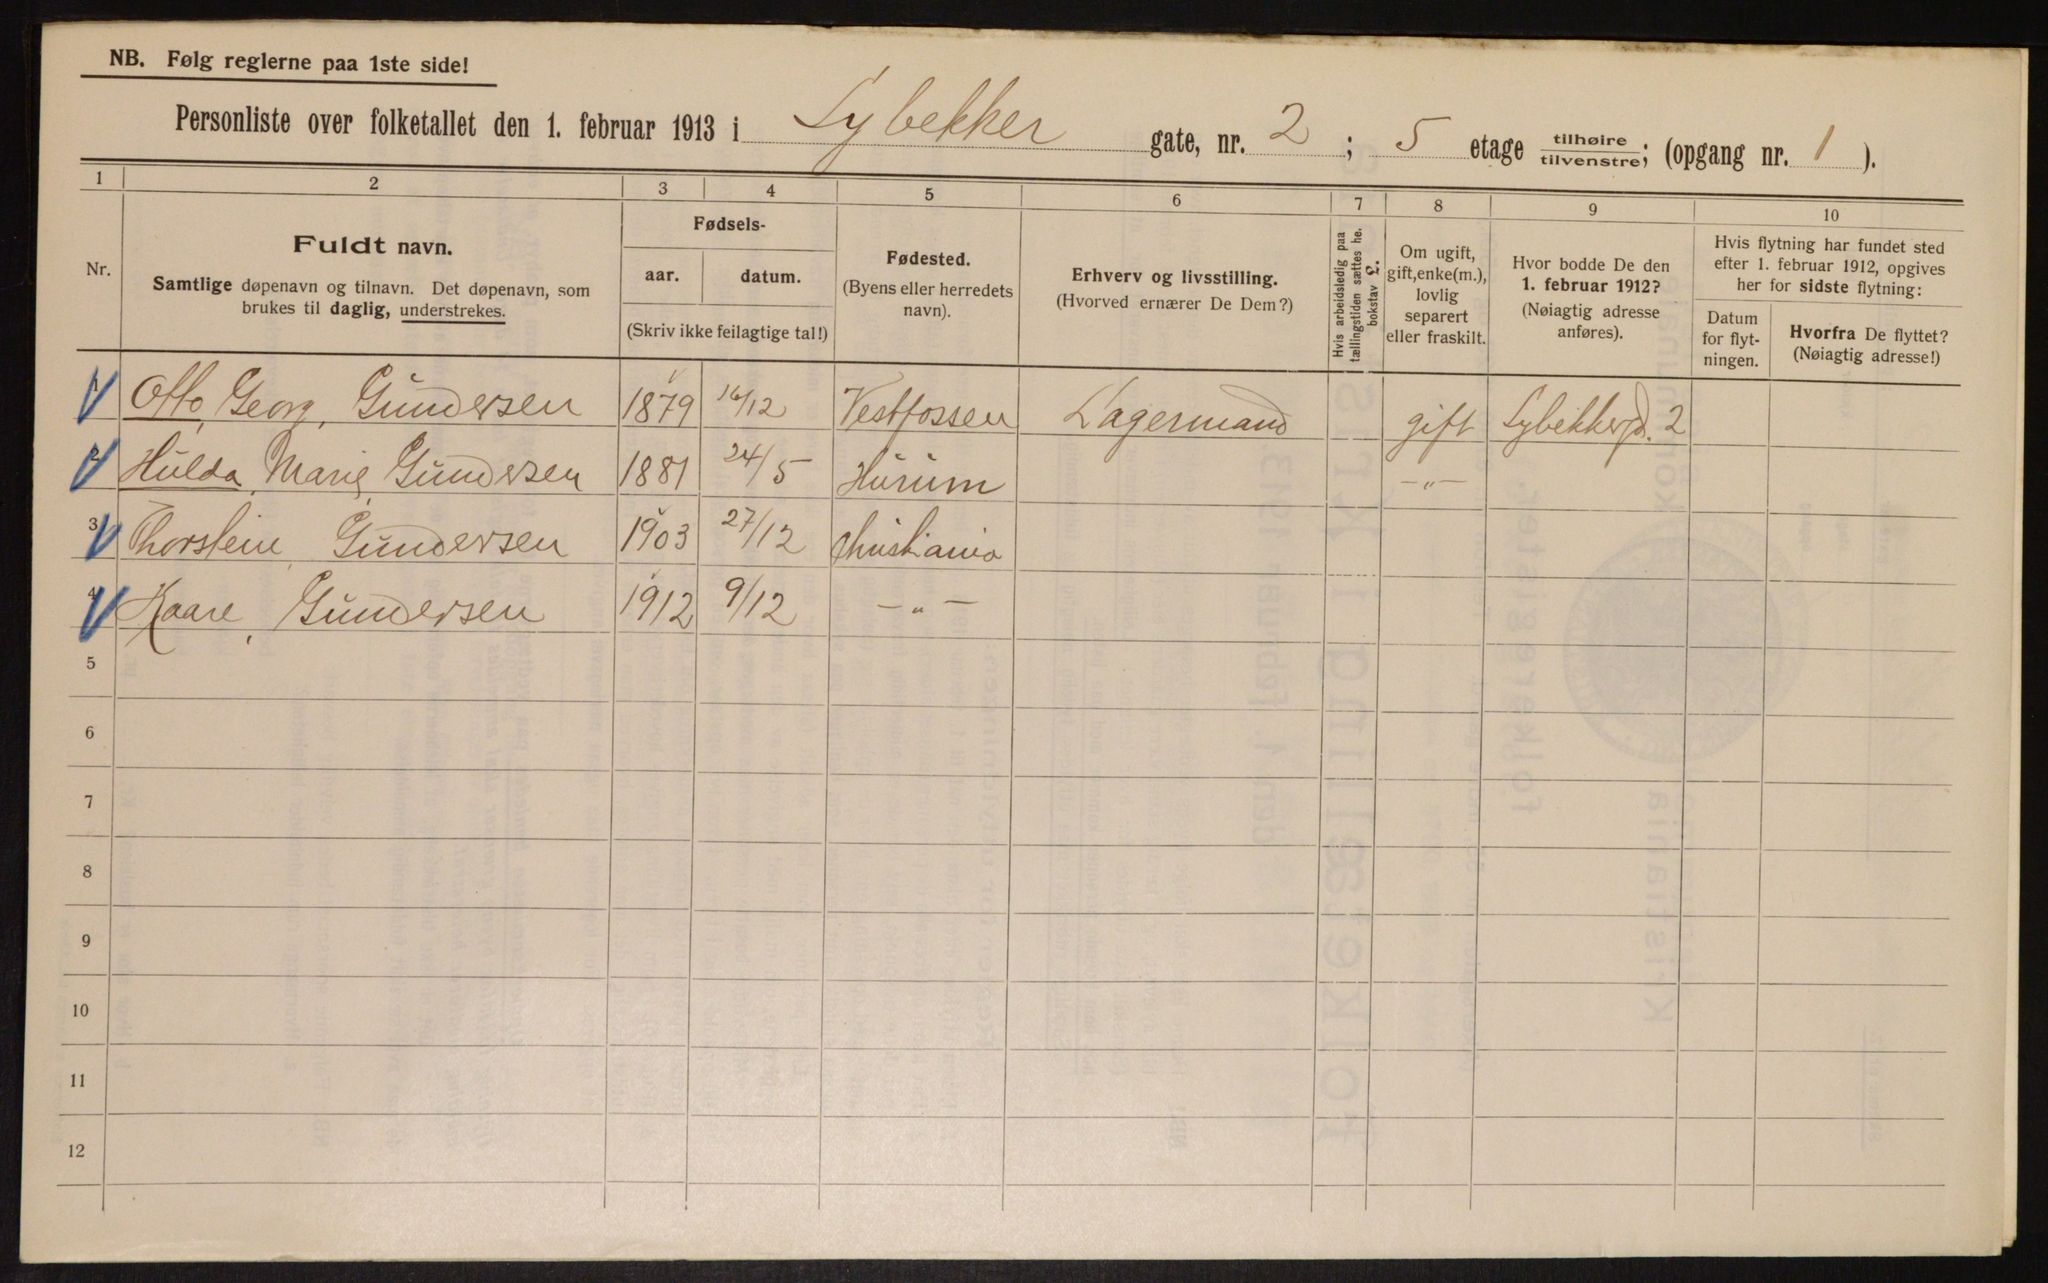 NB. Følg reglerne paa 1ste side!
Personliste over folketallet den 1. februar 1913 i Lybekker gate, nr. 2 ; 5 etage tilhøire/tilvenstre; (opgang nr. 1 ).
1 2 3 4 5 6 7 8 9 10
Nr.
Fuldt navn.
Samtlige døpenavn og tilnavn. Det døpenavn, som
brukes til daglig, understrekes.
Fødsels-
aar. datum.
(Skriv ikke feilagtige tal!)
Fødested.
(Byens eller herredets
navn).
Erhverv og livsstilling.
(Hvorved ernærer De Dem?)
Hvis arbeidsledig paa
tællingstiden sættes he.
bokstav L.
Om ugift,
gift, enke(m.),
lovlig
separert
eller fraskilt.
Hvor bodde De den
1. februar 1912?
(Nøiagtig adresse
anføres).
Hvis flytning har fundet sted
efter 1. februar 1912, opgives
her for sidste flytning:
Datum
for flyt-
ningen.
Hvorfra De flyttet?
(Nøiagtig adresse!)
1 Otto, Georg, Gundersen 1879 16/12 Vestfossen Lagermand gift Lybekkergd. 2
2 Hulda, Marie, Gundersen 1881 24/5 Hurum —„—
3 Thorstein, Gundersen 1903 27/12 Christiania
4 Kaare, Gundersen 1912 9/12 —„—
5
6
7
8
9
10
11
12